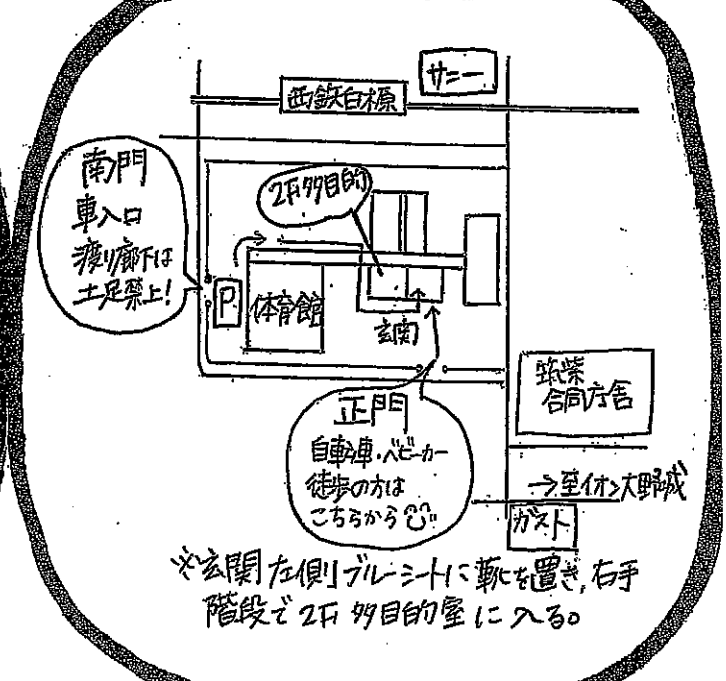 サニー
西鉄白木原
南門
車入口
渡り廊下は
土足禁止!
2F多目的
P
体育館
玄関
筑紫
合同庁舎
正門
自転車・ベビーカー
徒歩の方は
こちらから
→至イオン大野城
ガスト
※玄関左側ブルーシートに靴を置き、右手
階段で2F多目的室に入る。